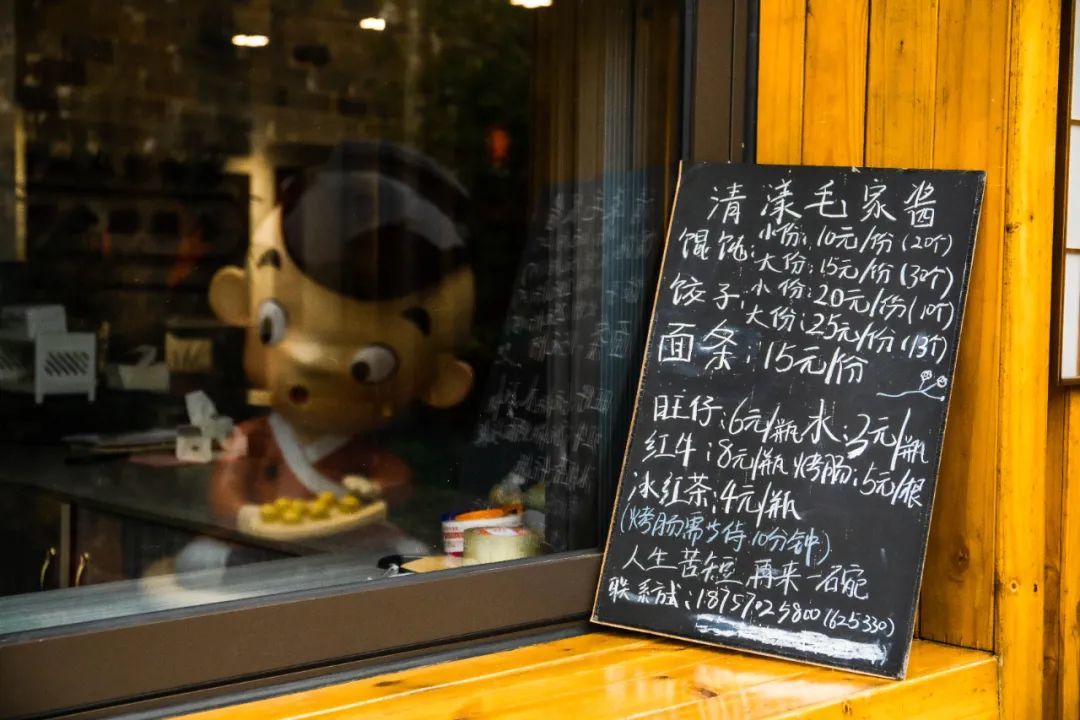 清漾毛家酱
馄饨:小份:10元/份(20个)
大份:15元/份(30个)
饺子:小份:20元/份(10个)
大份:25元/份(13个)
面条:15元/份
旺仔:6元/瓶 水:3元/瓶
红牛:8元/瓶 烤肠:5元/根
冰红茶:4元/瓶
(烤肠需等待10分钟)
人生苦短,再来一碗
联系方式:18757025800(625330)